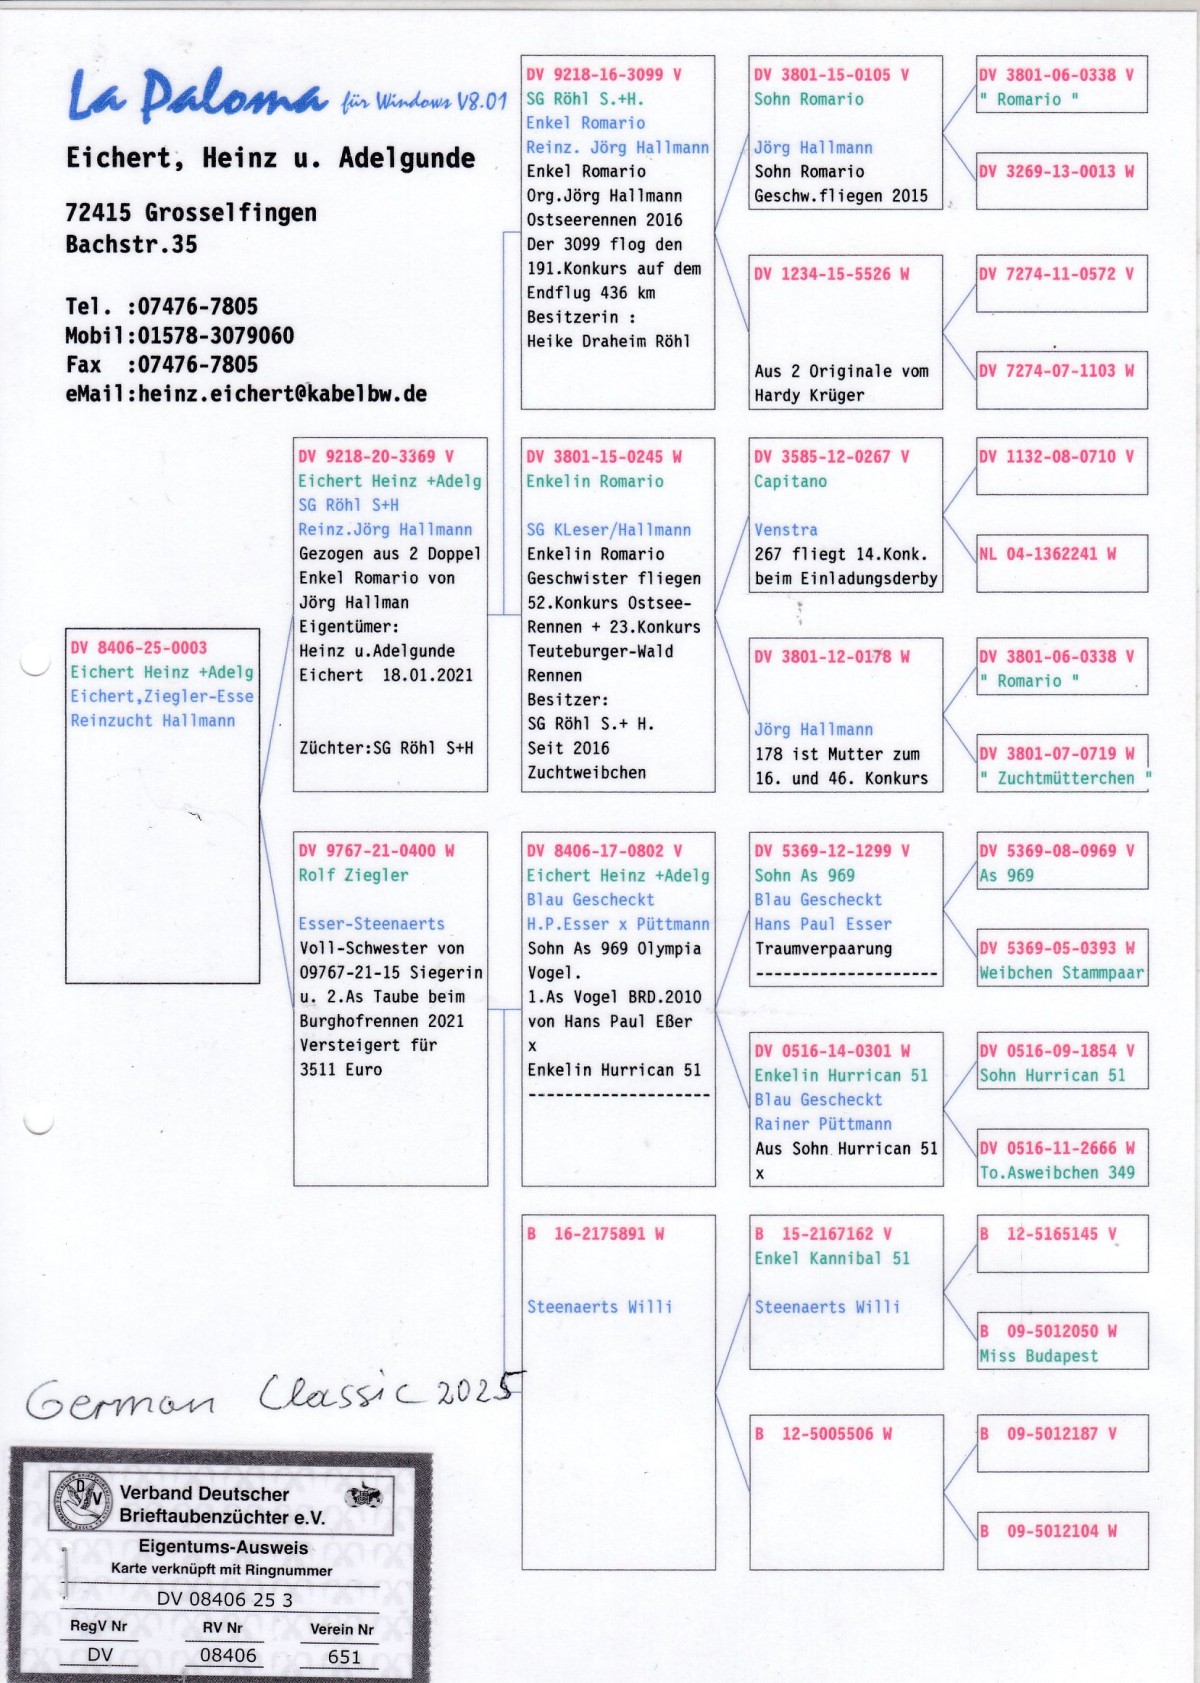 La Paloma für Windows V8.01
Eichert, Heinz u. Adelgunde
72415 Grosselfingen
Bachstr.35
Tel. :07476-7805
Mobil:01578-3079060
Fax :07476-7805
eMail:heinz.eichert@kabelbw.de
DV 8406-25-0003
Eichert Heinz +Adelg
Eichert,Ziegler-Esse
Reinzucht Hallmann
DV 9218-20-3369 V
Eichert Heinz +Adelg
SG Röhl S+H
Reinz.Jörg Hallmann
Gezogen aus 2 Doppel
Enkel Romario von
Jörg Hallman
Eigentümer:
Heinz u.Adelgunde
Eichert 18.01.2021
Züchter:SG Röhl S+H
DV 9767-21-0400 W
Rolf Ziegler
Esser-Steenaerts
Voll-Schwester von
09767-21-15 Siegerin
u. 2.As Taube beim
Burghofrennen 2021
Versteigert für
3511 Euro
DV 9218-16-3099 V
SG Röhl S.+H.
Enkel Romario
Reinz. Jörg Hallmann
Enkel Romario
Org.Jörg Hallmann
Ostseerennen 2016
Der 3099 flog den
191.Konkurs auf dem
Endflug 436 km
Besitzerin :
Heike Draheim Röhl
DV 3801-15-0245 W
Enkelin Romario
SG KLeser/Hallmann
Enkelin Romario
Geschwister fliegen
52.Konkurs Ostsee-
Rennen + 23.Konkurs
Teuteburger-Wald
Rennen
Besitzer:
SG Röhl S.+ H.
Seit 2016
Zuchtweibchen
DV 8406-17-0802 V
Eichert Heinz +Adelg
Blau Gescheckt
H.P.Esser x Püttmann
Sohn As 969 Olympia
Vogel.
1.As Vogel BRD.2010
von Hans Paul Eßer
x
Enkelin Hurrican 51
--------------------
B 16-2175891 W
Steenaerts Willi
DV 3801-15-0105 V
Sohn Romario
Jörg Hallmann
Sohn Romario
Geschw.fliegen 2015
DV 1234-15-5526 W
Aus 2 Originale vom
Hardy Krüger
DV 3585-12-0267 V
Capitano
Venstra
267 fliegt 14.Konk.
beim Einladungsderby
DV 3801-12-0178 W
Jörg Hallmann
178 ist Mutter zum
16. und 46. Konkurs
DV 5369-12-1299 V
Sohn As 969
Blau Gescheckt
Hans Paul Esser
Traumverpaarung
--------------------
DV 0516-14-0301 W
Enkelin Hurrican 51
Blau Gescheckt
Rainer Püttmann
Aus Sohn Hurrican 51
x
B 15-2167162 V
Enkel Kannibal 51
Steenaerts Willi
B 12-5005506 W
DV 3801-06-0338 V
" Romario "
DV 3269-13-0013 W
DV 7274-11-0572 V
DV 7274-07-1103 W
DV 1132-08-0710 V
NL 04-1362241 W
DV 3801-06-0338 V
" Romario "
DV 3801-07-0719 W
" Zuchtmütterchen "
DV 5369-08-0969 V
As 969
DV 5369-05-0393 W
Weibchen Stammpaar
DV 0516-09-1854 V
Sohn Hurrican 51
DV 0516-11-2666 W
To.Asweibchen 349
B 12-5165145 V
B 09-5012050 W
Miss Budapest
B 09-5012187 V
B 09-5012104 W
German Classic 2025
Verband Deutscher
Brieftaubenzüchter e.V.
Eigentums-Ausweis
Karte verknüpft mit Ringnummer
DV 08406 25 3
RegV Nr RV Nr Verein Nr
DV 08406 651